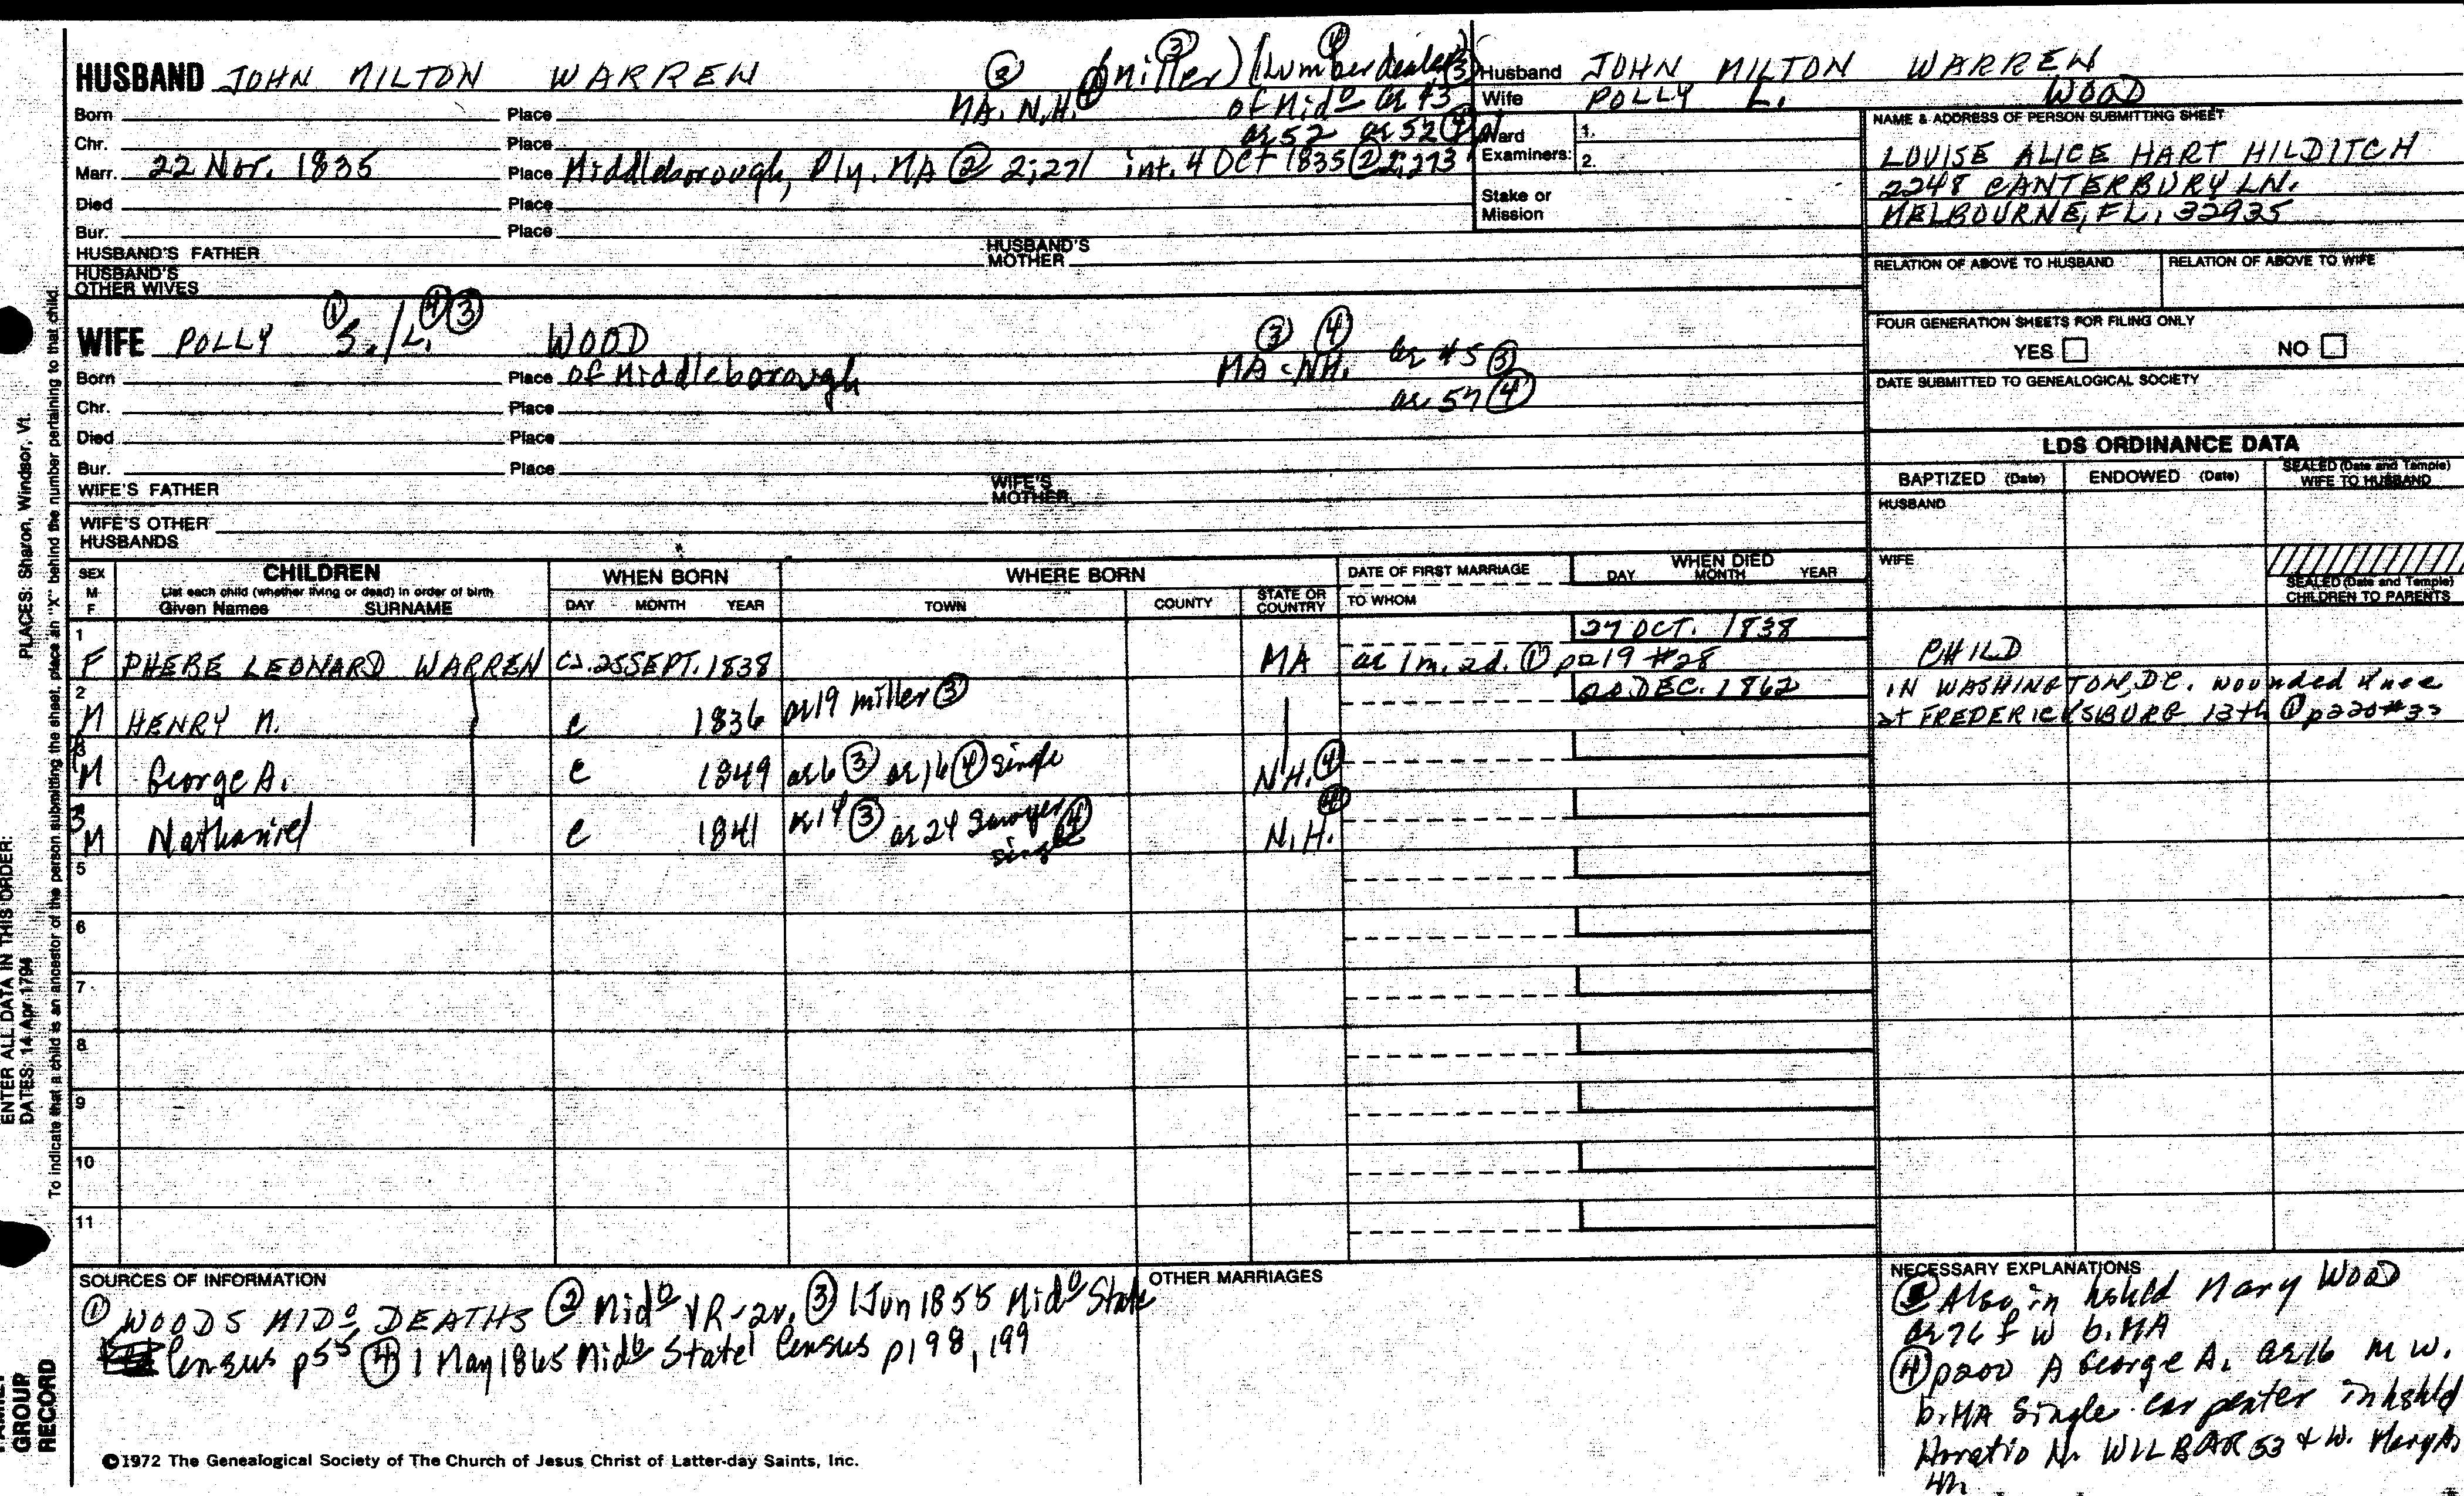 HUSBAND JOHN MILTON WARREN ③ (miller) ③ (Lumber dealer) ④ ③
MA. N.H. ④ of Mid⁰ ae 43
Born Place
ae 52 ae 52 ④
Chr. Place
Marr. 22 Nov. 1835 Place Middleborough, Ply. MA ② 2;271 int. 4 OCT 1835 ② 2;273
Died Place
Bur. Place
HUSBAND'S FATHER HUSBAND'S MOTHER
HUSBAND'S OTHER WIVES
Husband JOHN MILTON WARREN
Wife POLLY L. WOOD
Ward Examiners: 1.
2.
Stake or Mission
NAME & ADDRESS OF PERSON SUBMITTING SHEET
LOUISE ALICE HART HILDITCH
2248 CANTERBURY LN.
MELBOURNE, FL, 32935
RELATION OF ABOVE TO HUSBAND RELATION OF ABOVE TO WIFE
FOUR GENERATION SHEETS FOR FILING ONLY
YES NO
DATE SUBMITTED TO GENEALOGICAL SOCIETY
WIFE POLLY S. ① / L. ④ ③ WOOD ③ ④
MA - NH. ae 45 ③
Born Place of Middleborough
ae 57 ④
Chr. Place
Died Place
Bur. Place
WIFE'S FATHER WIFE'S MOTHER
WIFE'S OTHER HUSBANDS
LDS ORDINANCE DATA
BAPTIZED (Date) ENDOWED (Date) SEALED (Date and Temple) WIFE TO HUSBAND
HUSBAND
WIFE
SEALED (Date and Temple) CHILDREN TO PARENTS
SEX M F CHILDREN WHEN BORN WHERE BORN DATE OF FIRST MARRIAGE WHEN DIED
List each child (whether living or dead) in order of birth
Given Names SURNAME DAY MONTH YEAR TOWN COUNTY STATE OR COUNTRY TO WHOM DAY MONTH YEAR
1 27 OCT. 1838
F PHEBE LEONARD WARREN CJ. 25 SEPT. 1838 MA ae 1m, 2d. ① p219 #28 CHILD
2 20 DEC. 1862 IN WASHINGTON, DC. wounded knee
M HENRY M. c 1836 ae 19 miller ③ at FREDERICKSBURG 13th ① p220 #33
M George A. c 1849 ae 6 ③ ae 16 ④ single N.H. ④
3 M Nathaniel c 1841 ae 14 ③ ae 24 Sawyer single ④ N.H. ④
5
6
7
8
9
10
11
SOURCES OF INFORMATION
① WOODS MID⁰ DEATHS ② Mid⁰ VR-2v. ③ 1 Jun 1855 Mid⁰ State
Census p55 ④ 1 May 1865 Mid⁰ State Census p198, 199
OTHER MARRIAGES
NECESSARY EXPLANATIONS
③ Also in hshld Mary WOOD
ae 76 f w b. MA
④ p200 A George A. ae 16 m w.
b. MA Single carpenter in hshld
Horatio N. WILBAR 53 & W. Mary A.
©1972 The Genealogical Society of The Church of Jesus Christ of Latter-day Saints, Inc.
ENTER ALL DATA IN THIS ORDER:
PLACES: Sharon, Windsor, Vt.
DATES: 14 Apr 1794
To indicate that a child is an ancestor of the person submitting the sheet, place an "X" behind the number pertaining to that child.
GROUP
RECORD